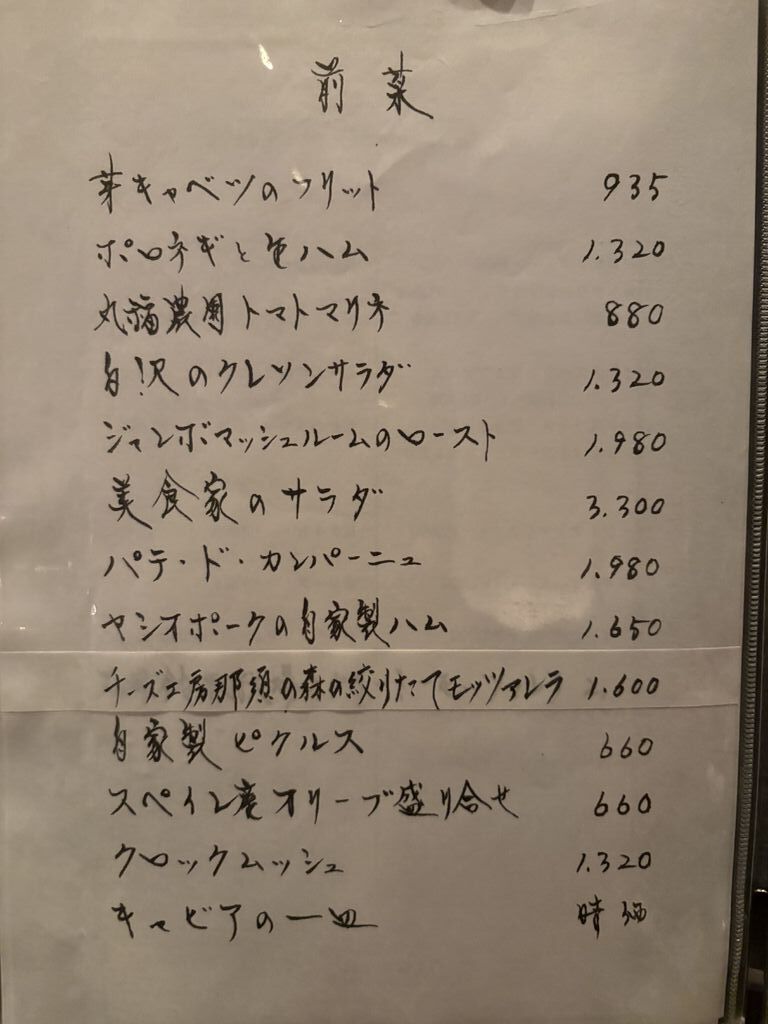 前菜
芽キャベツのフリット 935
ポロネギと生ハム 1.320
丸福農園トマトマリネ 880
のクレソンサラダ 1.320
ジャンボマッシュルームのロースト 1.980
美食家のサラダ 3.300
パテ・ド・カンパーニュ 1.980
ヤシオポークの自家製ハム 1.650
チーズ工房那須の森の絞りたてモッツァレラ 1.600
自家製ピクルス 660
スペイン産オリーブ盛り合せ 660
クロックムッシュ 1.320
キャビアの一皿 時価